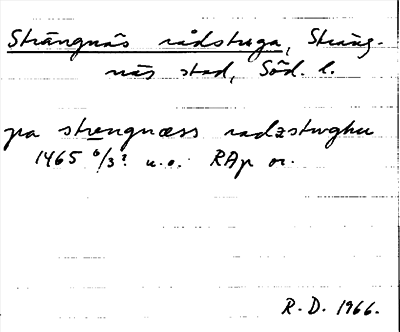 Strängnäs rådstuga, Sträng-
näs stad, Söd. l.
pa strengnæss radzstwghu
1465 6/3? u.o. RAp or.
R.D. 1966.